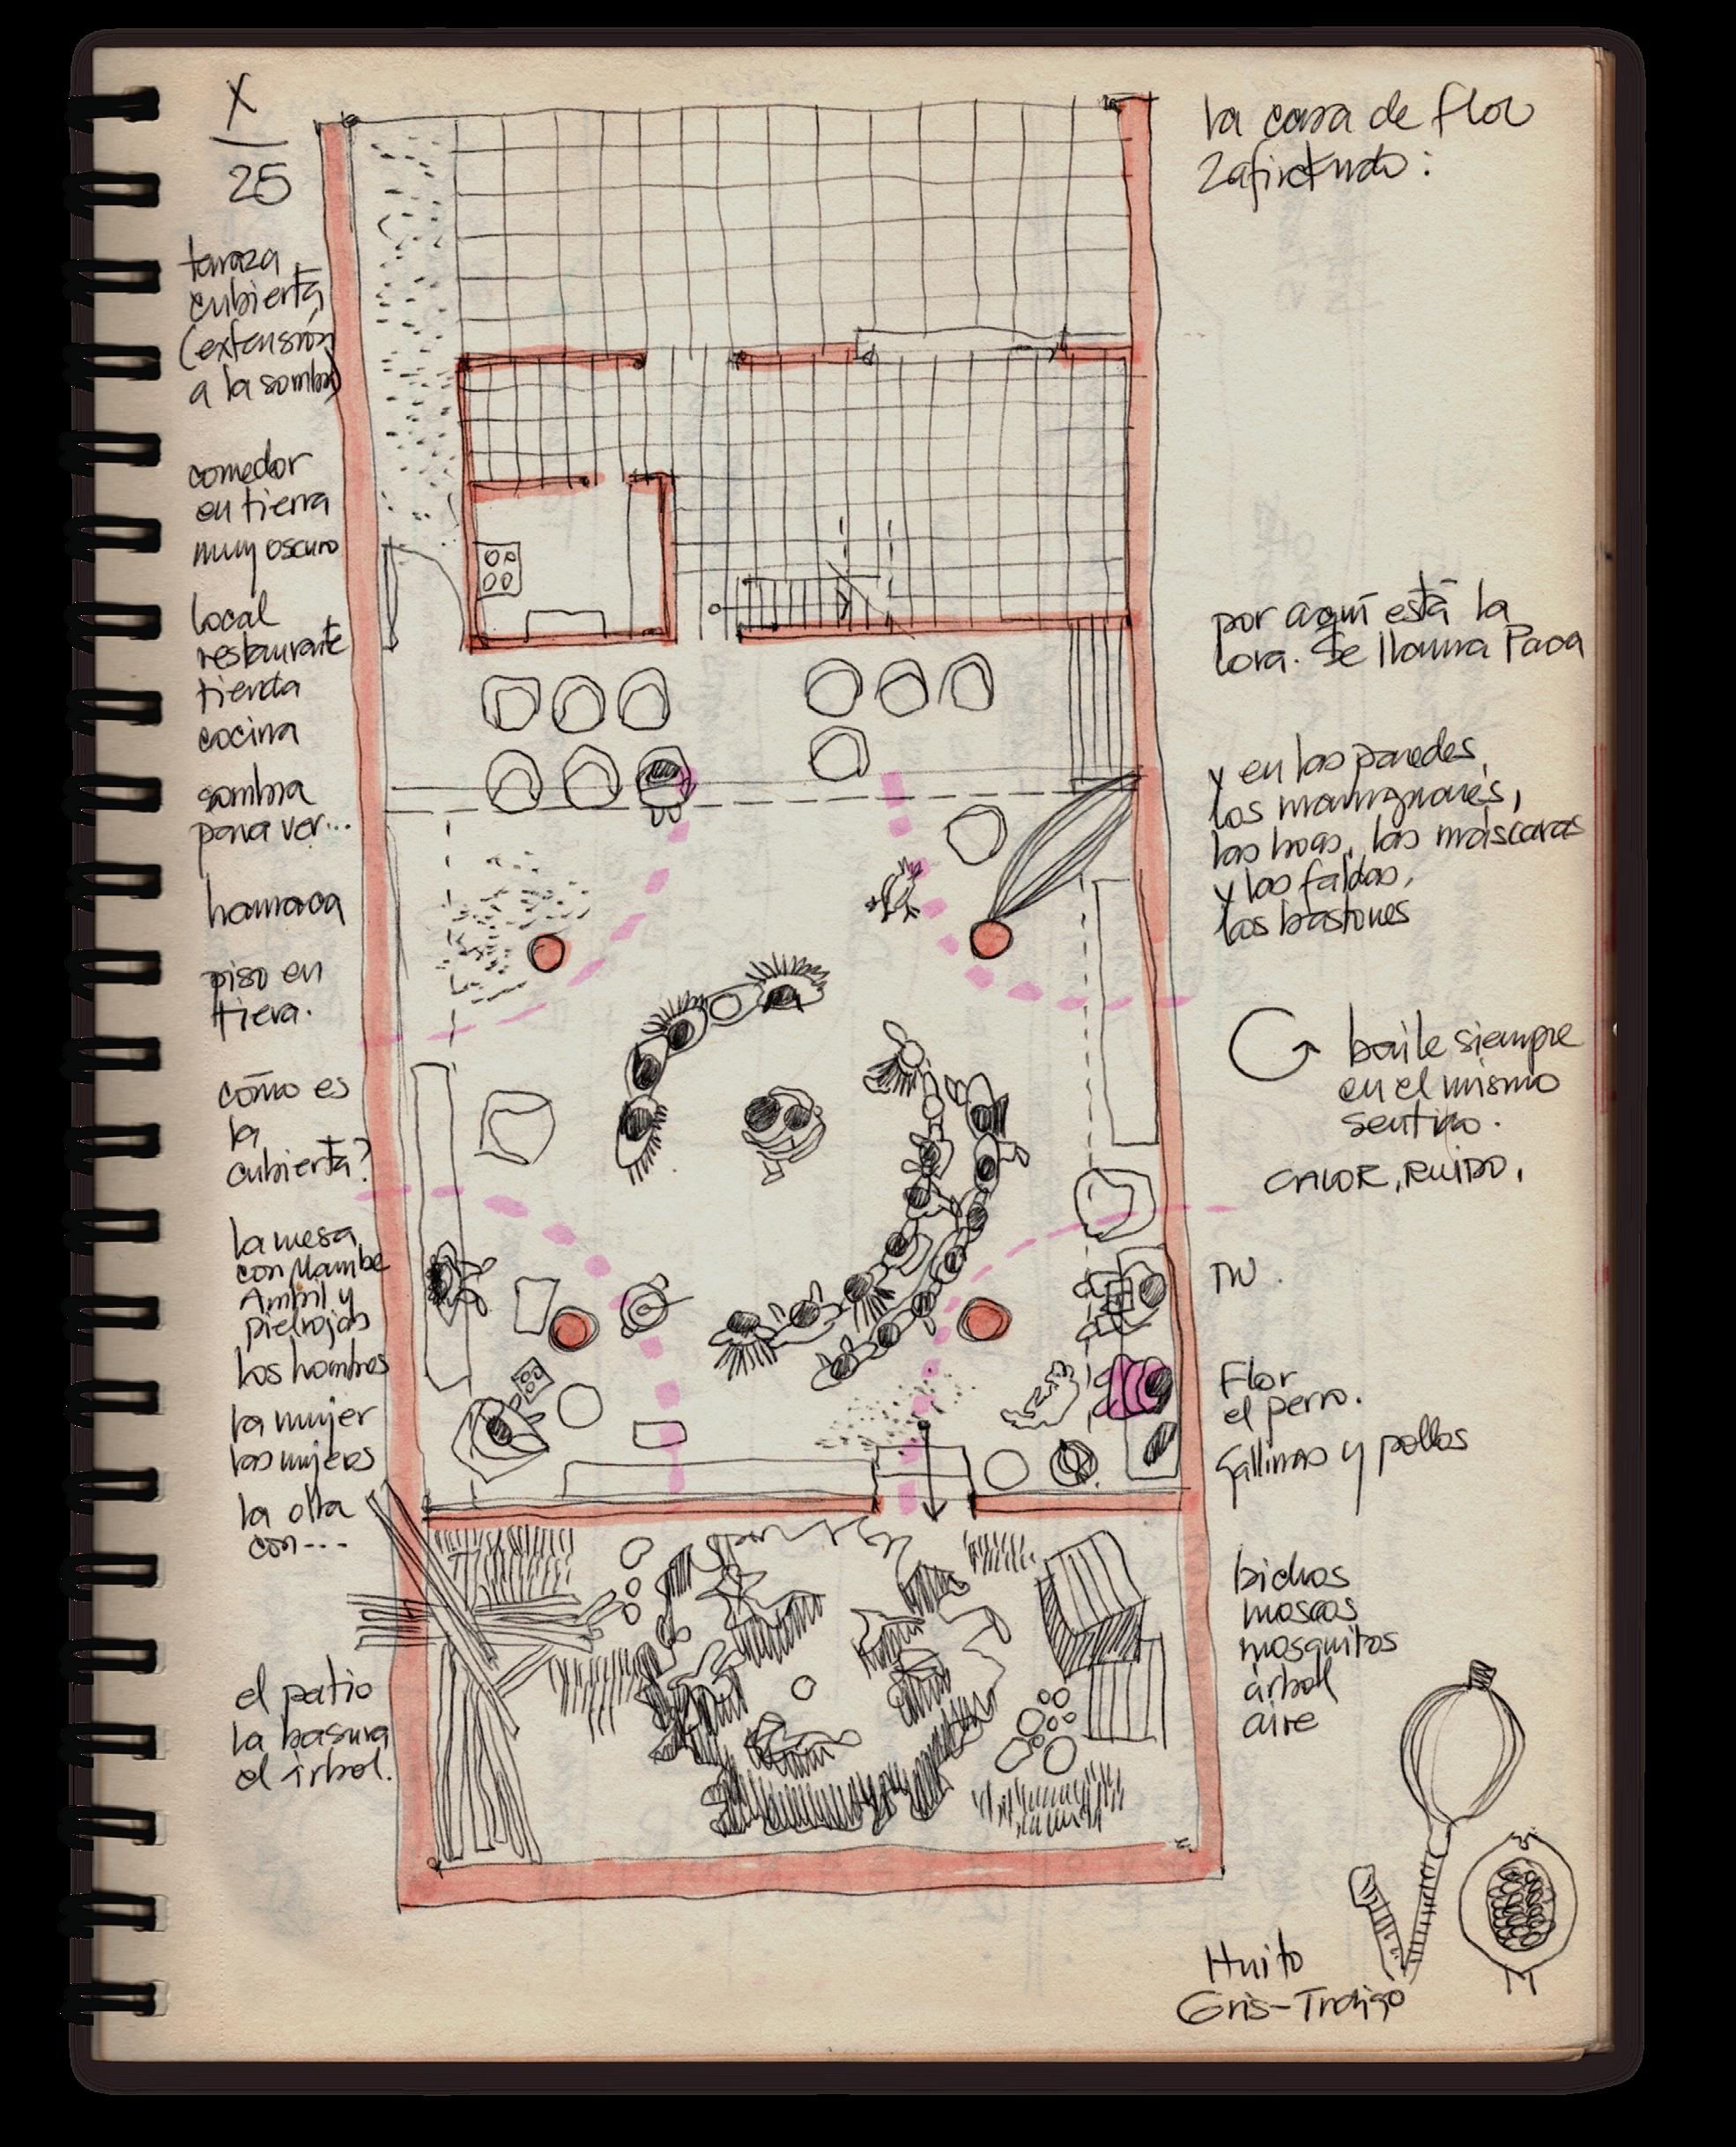 X
25
terraza
cubierta
(extensión
a la sombra)
comedor
en tierra
muy oscuro
local
restaurante
tienda
cocina
sombra
para ver...
hamaca
piso en
tierra.
cómo es
la
cubierta?
la mesa
con Mambe
Ambil y
pielrojas
los hombres
la mujer
las mujeres
la olla
con---
el patio
la basura
el árbol.
la casa de Flor
por aquí está la
lora. Se llama Paca
y en las paredes,
los
las máscaras
y las faldas,
los bastones
baile siempre
en el mismo
sentido.
CALOR, RUIDO,
Flor
el perro.
Gallinas y pollos
bichos
moscas
mosquitos
árbol
aire
Huito